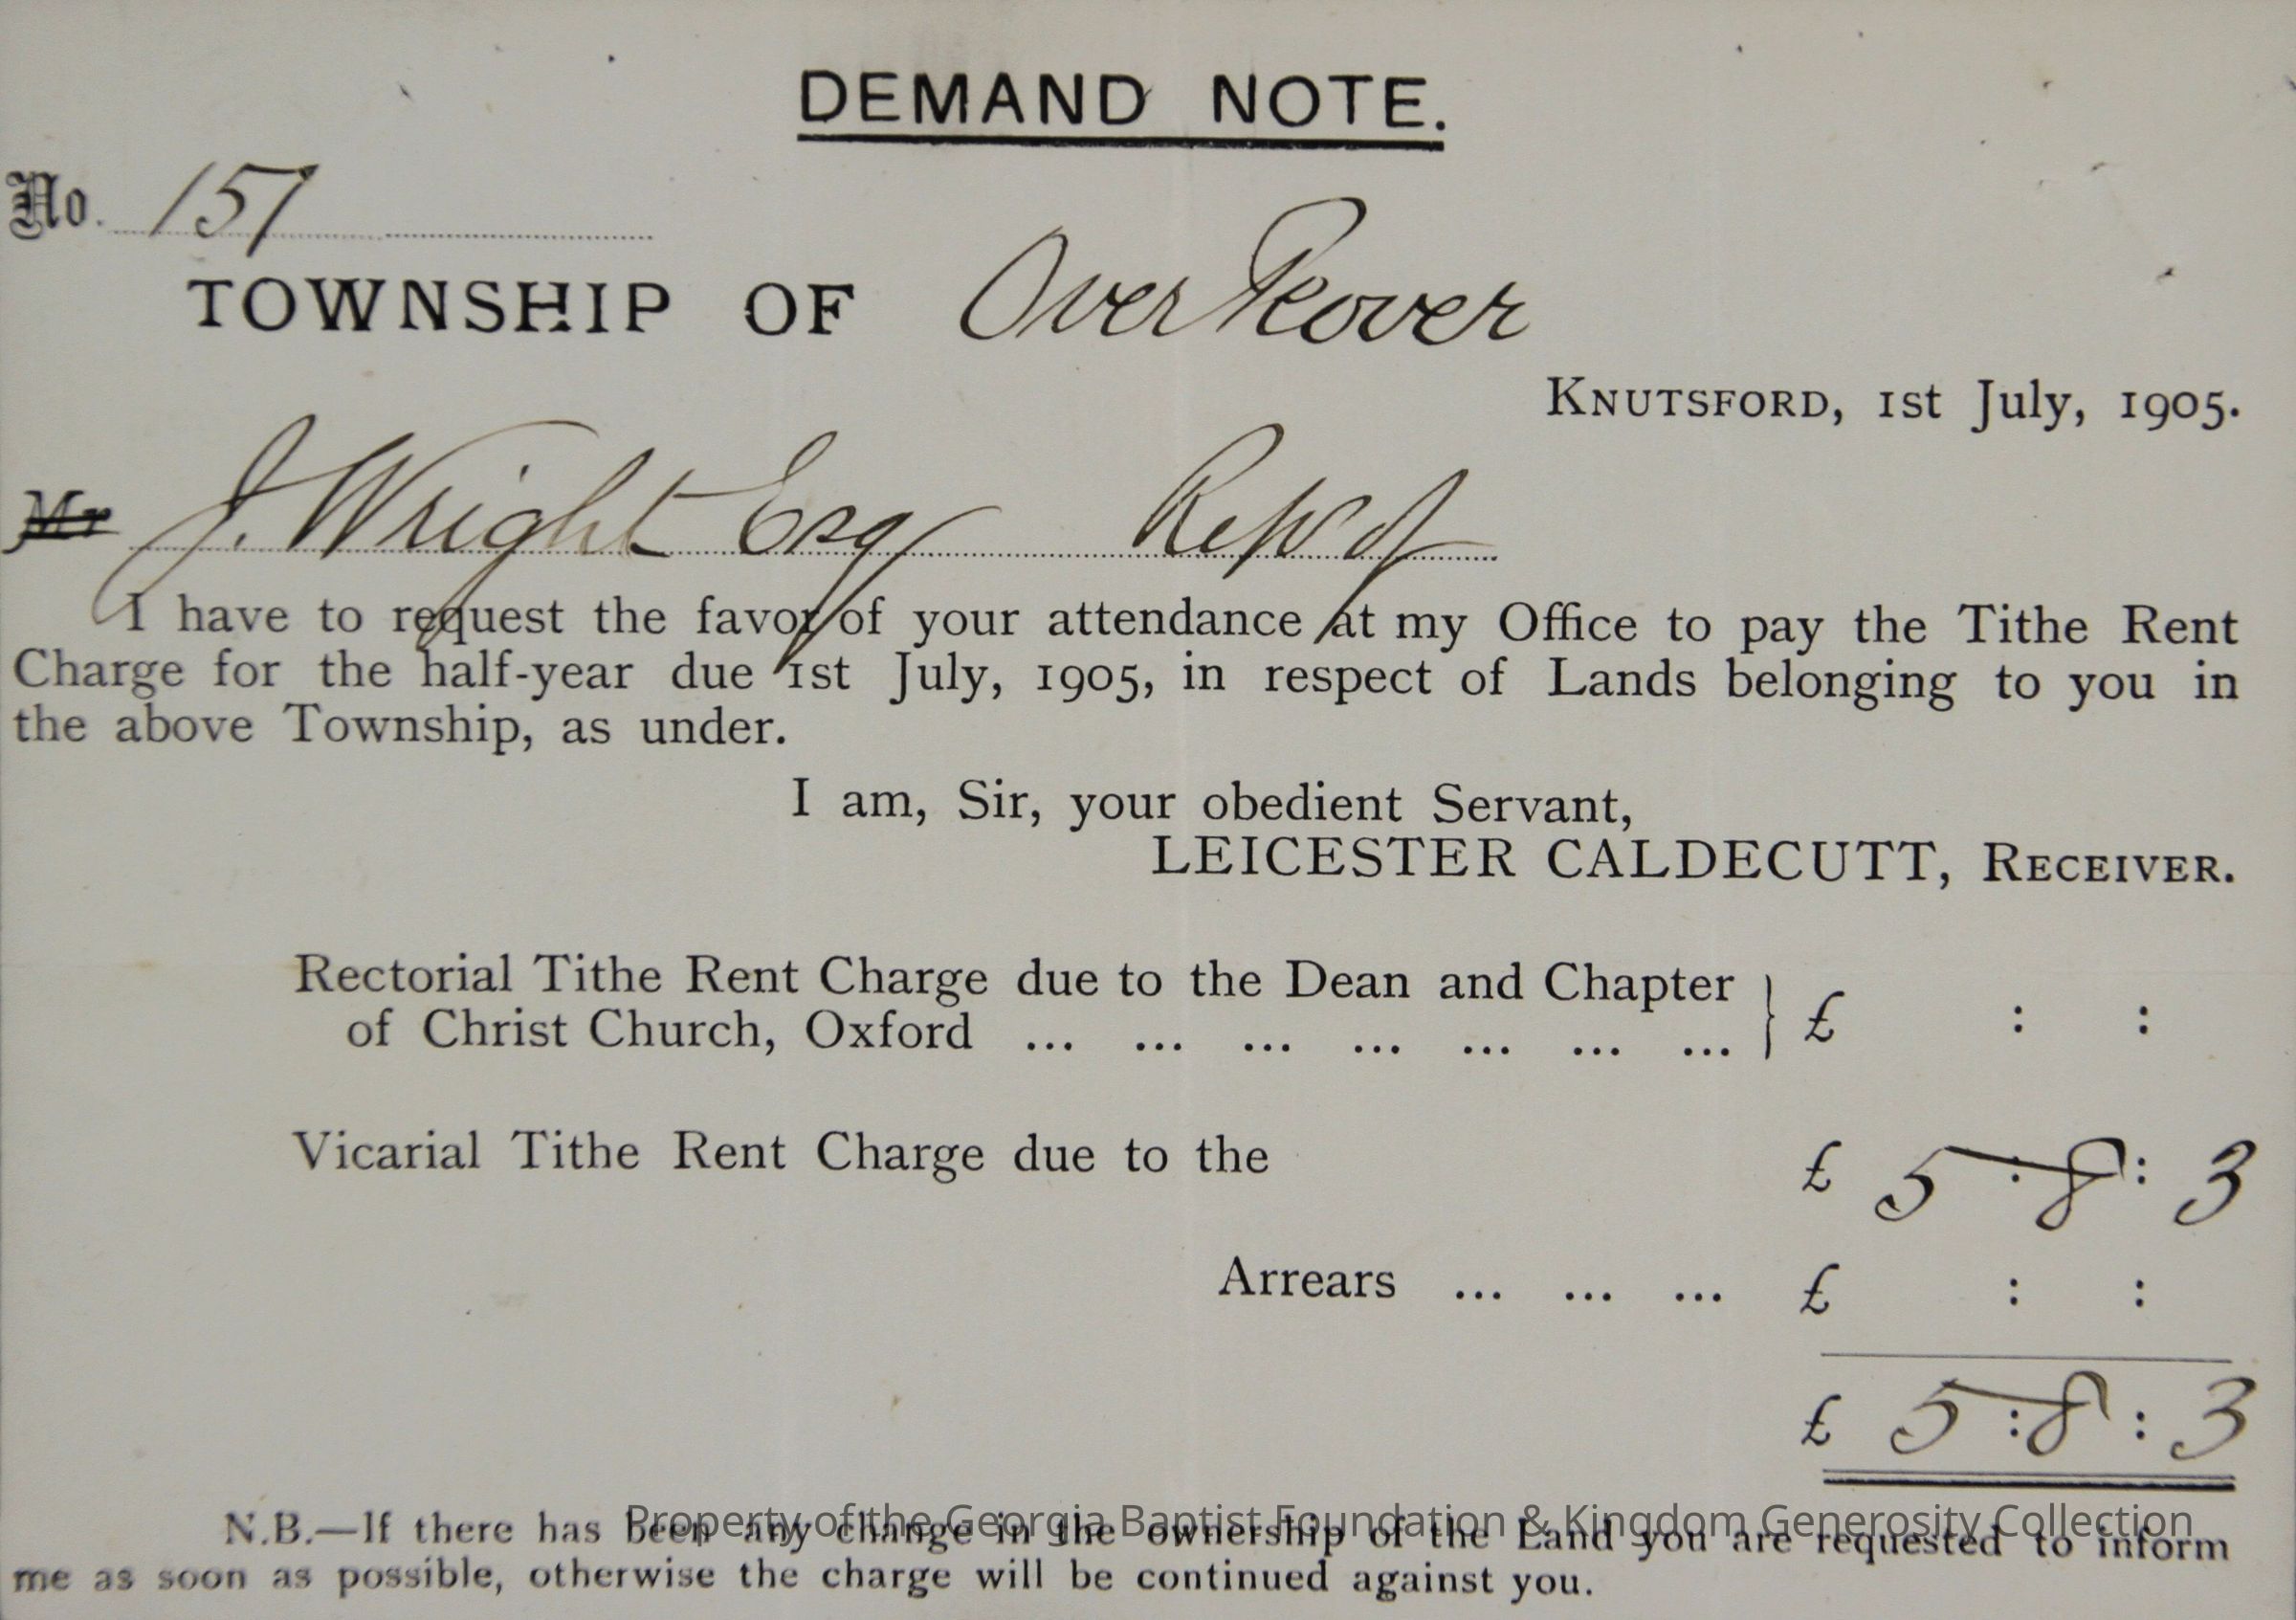 DEMAND NOTE.
No. 157
TOWNSHIP OF Over Peover
KNUTSFORD, 1st July, 1905.
Mr J. Wright Esq Reps of
I have to request the favor of your attendance at my Office to pay the Tithe Rent
Charge for the half-year due 1st July, 1905, in respect of Lands belonging to you in
the above Township, as under.
I am, Sir, your obedient Servant,
LEICESTER CALDECUTT, RECEIVER.
Rectorial Tithe Rent Charge due to the Dean and Chapter
of Christ Church, Oxford ... ... ... ... ... ... ... } £ : :
Vicarial Tithe Rent Charge due to the £ 5 : 8 : 3
Arrears ... ... ... £ : :
£ 5 : 8 : 3
N.B.—If there has been any change in the ownership of the Land you are requested to inform
me as soon as possible, otherwise the charge will be continued against you.
Property of the Georgia Baptist Foundation & Kingdom Generosity Collection